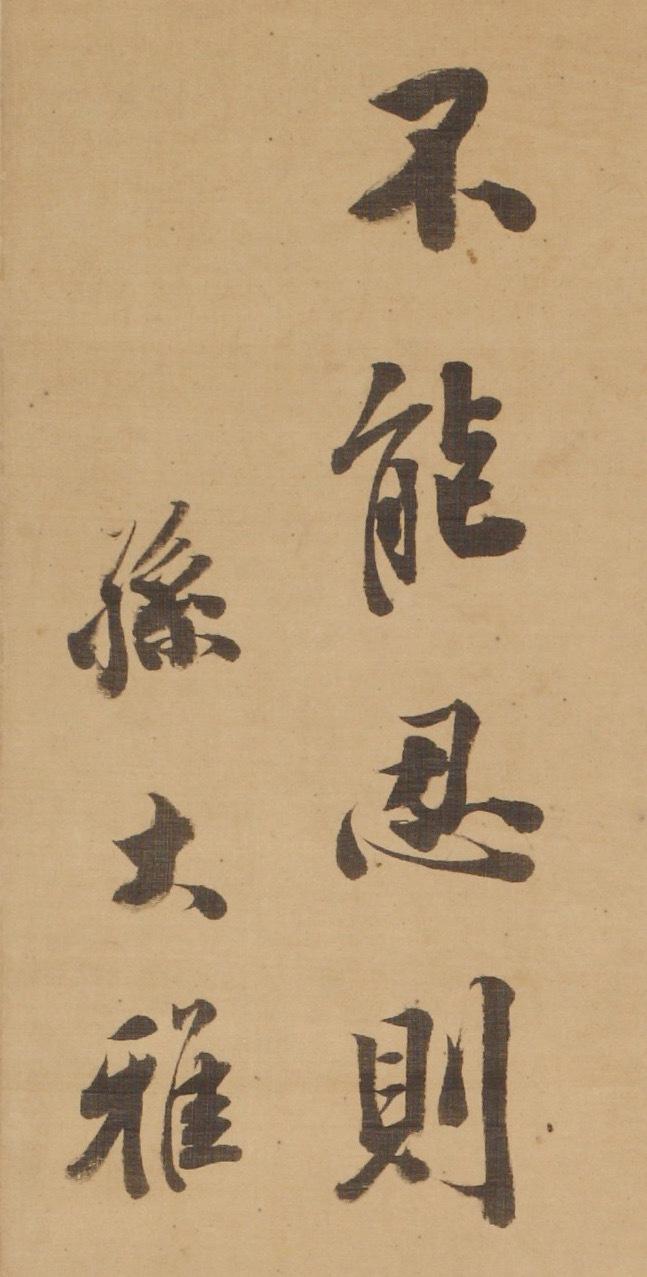 不能忍則
孫大雅